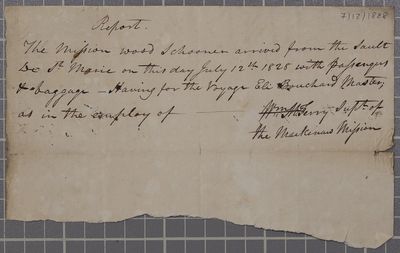 7/12/1828
Report.
The Mission wood Schooner arrived from the Sault
De St. Marie on this day July 12th 1828 with passengers
& baggage - Having for the Voyage Eli Bouchard Master,
as in the employ of Wm. M. Ferry Supt. of
the Mackinaw Mission